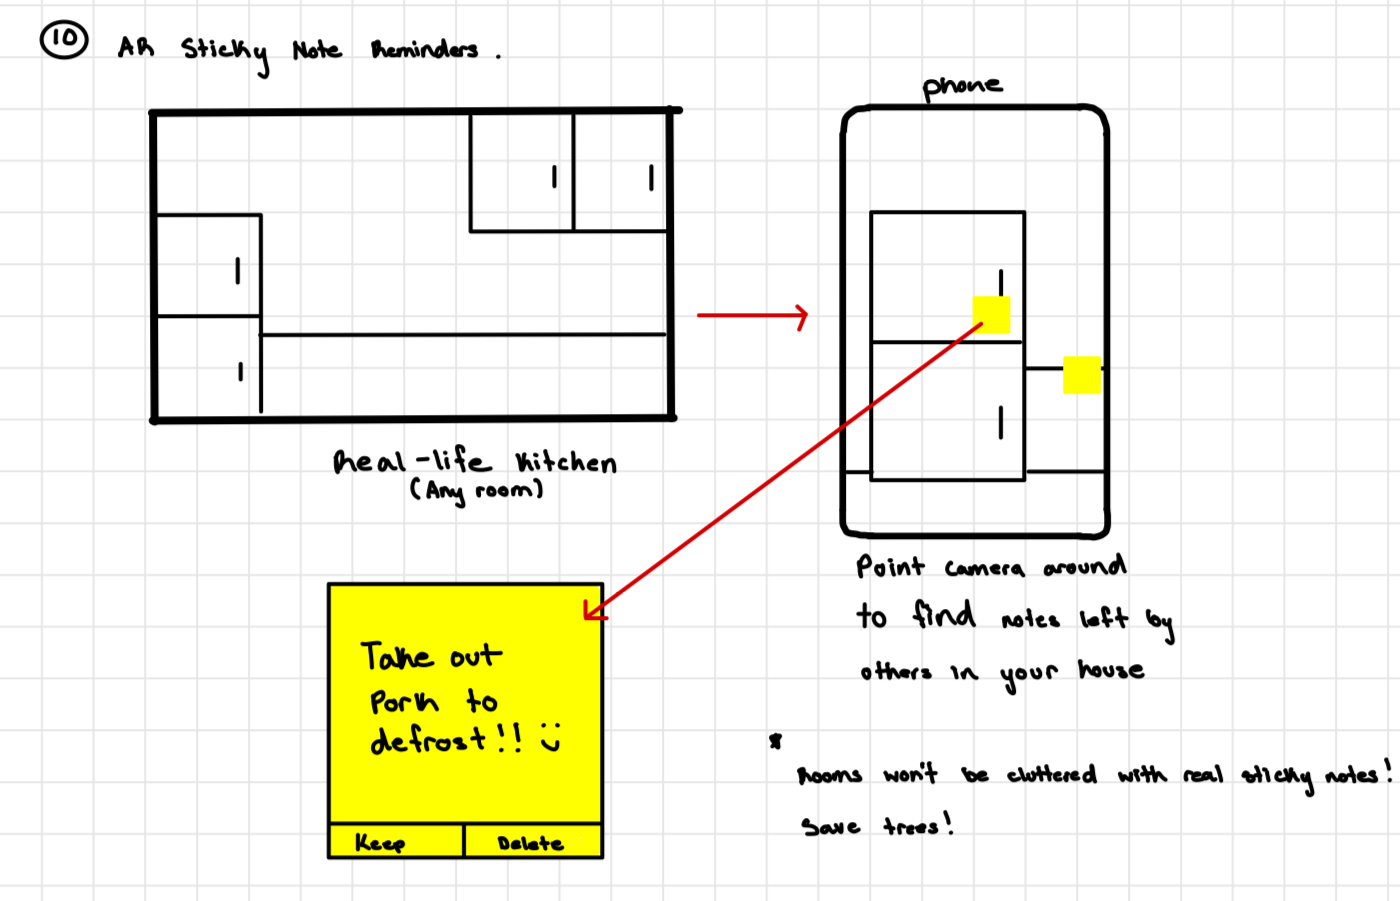 10 AR Sticky Note Reminders.
phone
Real-life Kitchen
(Any room)
Point camera around
to find notes left by
others in your house
Take out
Pork to
defrost!! :)
Keep Delete
*
Rooms won't be cluttered with real sticky notes!
Save trees!